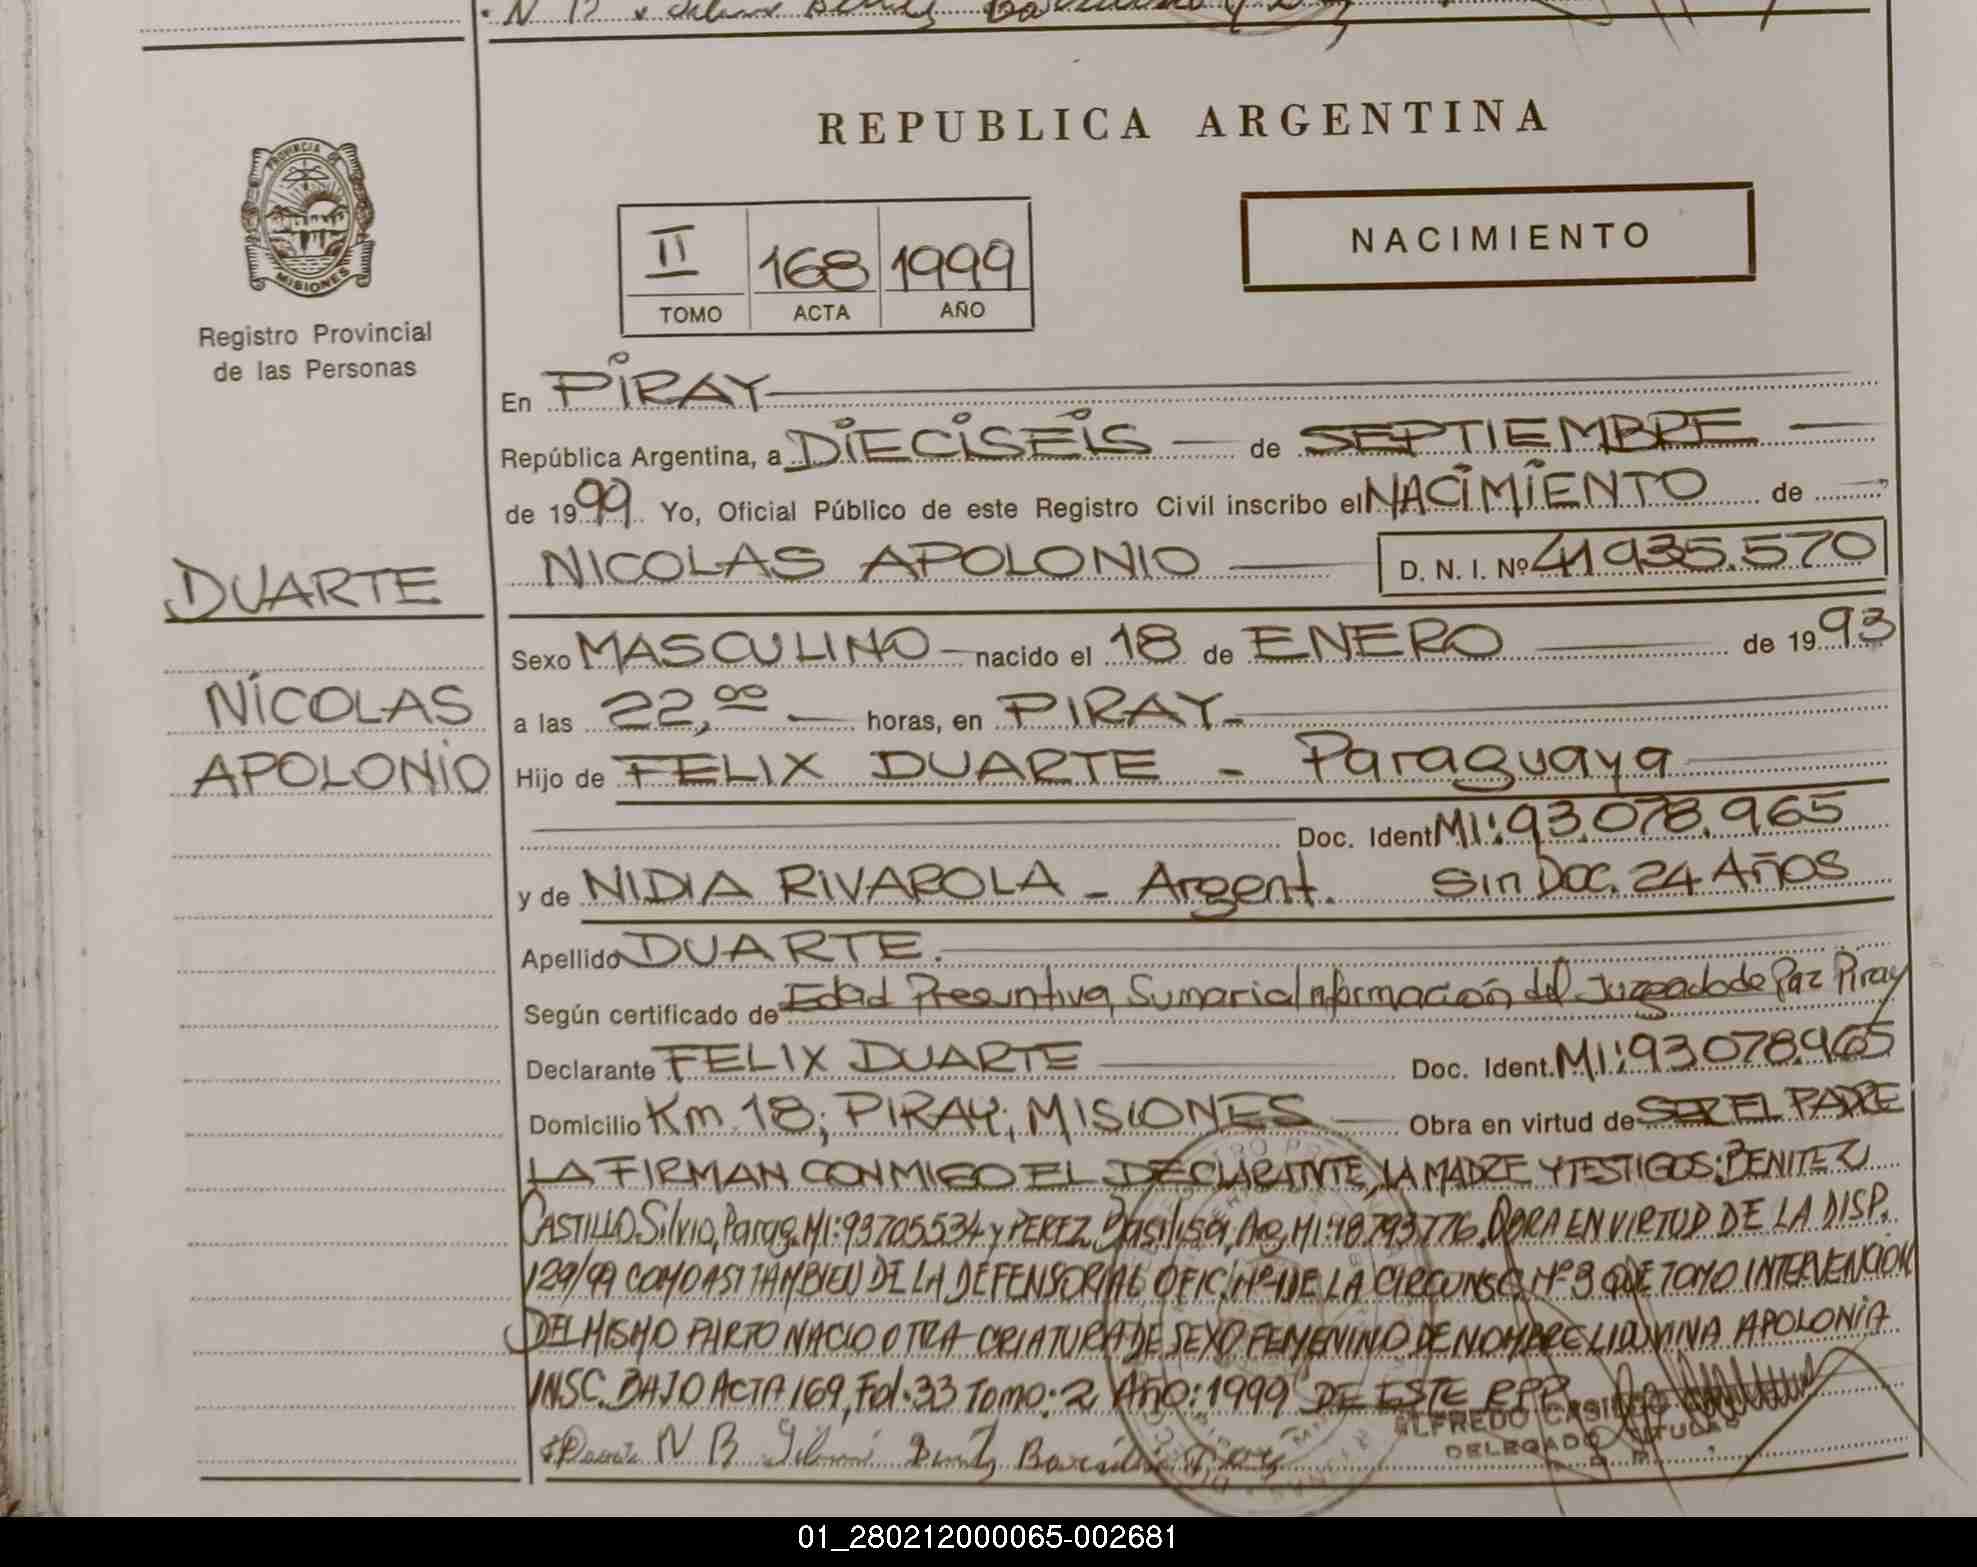 REPUBLICA ARGENTINA
PROVINCIA DE
MISIONES
Registro Provincial
de las Personas
II 168 1999
TOMO ACTA AÑO
NACIMIENTO
En PIRAY
República Argentina, a DIECISEIS de SEPTIEMBRE
de 1999 Yo, Oficial Público de este Registro Civil inscribo el NACIMIENTO de
DUARTE
NICOLAS
APOLONIO
NICOLAS APOLONIO D. N. I. Nº 41935.570
Sexo MASCULINO nacido el 18 de ENERO de 1993
a las 22,00 horas, en PIRAY
Hijo de FELIX DUARTE - Paraguaya
Doc. Ident MI: 93.078.965
y de NIDIA RIVAROLA - Argent. Sin Doc. 24 AÑOS
Apellido DUARTE.
Según certificado de Edad Presuntiva, Sumaria Información del Juzgado de Paz Piray
Declarante FELIX DUARTE Doc. Ident. MI: 93078.965
Domicilio Km 18; PIRAY; MISIONES Obra en virtud de SER EL PADRE
LA FIRMAN CONMIGO EL DECLARANTE, LA MADRE Y TESTIGOS: BENITEZ
CASTILLO Silvio, Parag. MI: 93705534 y PEREZ Basilisa, Arg. MI: 18.793.776. OBRA EN VIRTUD DE LA DISP.
129/99 COMO ASI TAMBIEN DE LA DEFENSORIA OFIC. Nº 1 DE LA CIRCUNSC. Nº 3 QUE TOMO INTERVENCION
DEL MISMO PARTO NACIO OTRA CRIATURA DE SEXO FEMENINO DE NOMBRE LIDUVINA APOLONIA
INSC. BAJO ACTA 169, Fol. 33 Tomo: 2 Año: 1999 DE ESTE RPP.
ALFREDO CASI
DELEGADO TITULAR
N B
01_280212000065-002681